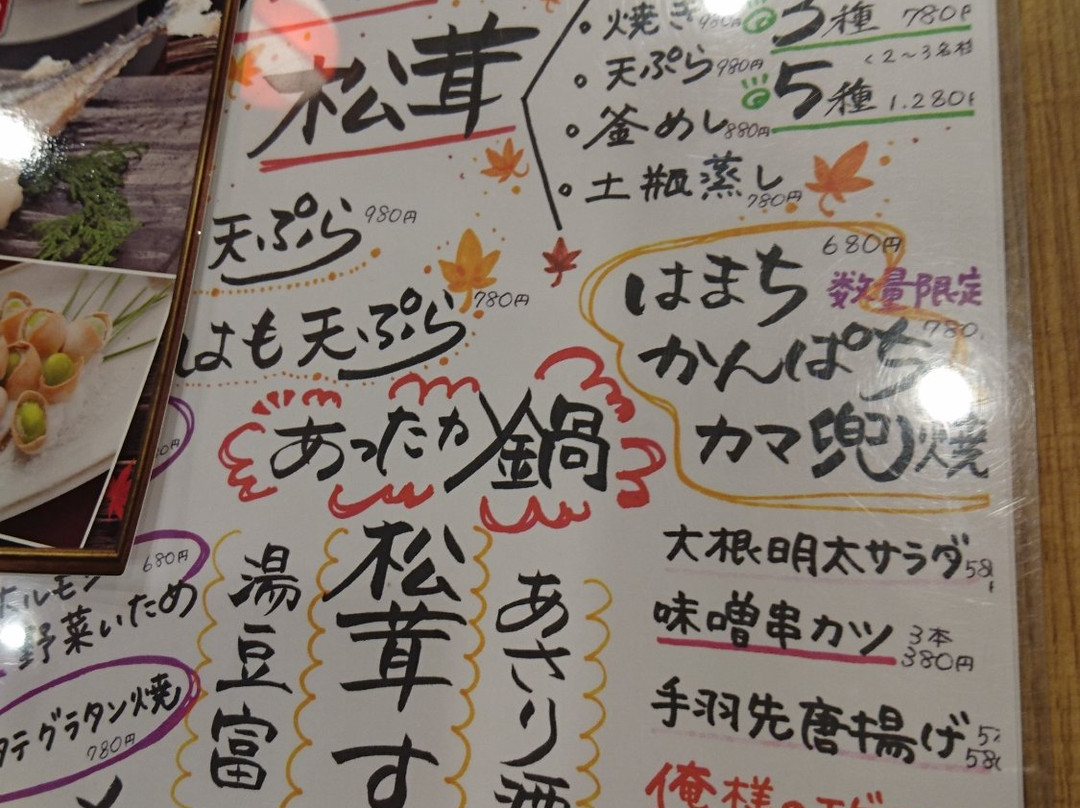 松茸
焼き 980円
天ぷら 980円
釜めし 880円
土瓶蒸し 780円
3種 780円
2〜3名様
5種 1.280円
天ぷら 980円
はも天ぷら 780円
はまち 680円
数量限定
かんぱち 780
カマ兜焼
あったか鍋
湯豆富
松茸す
あさり酒
大根明太サラダ 58
味噌串カツ 3本 380円
手羽先唐揚げ 58
俺様の
ホルモン 680円
野菜いため
タテグラタン焼 780円